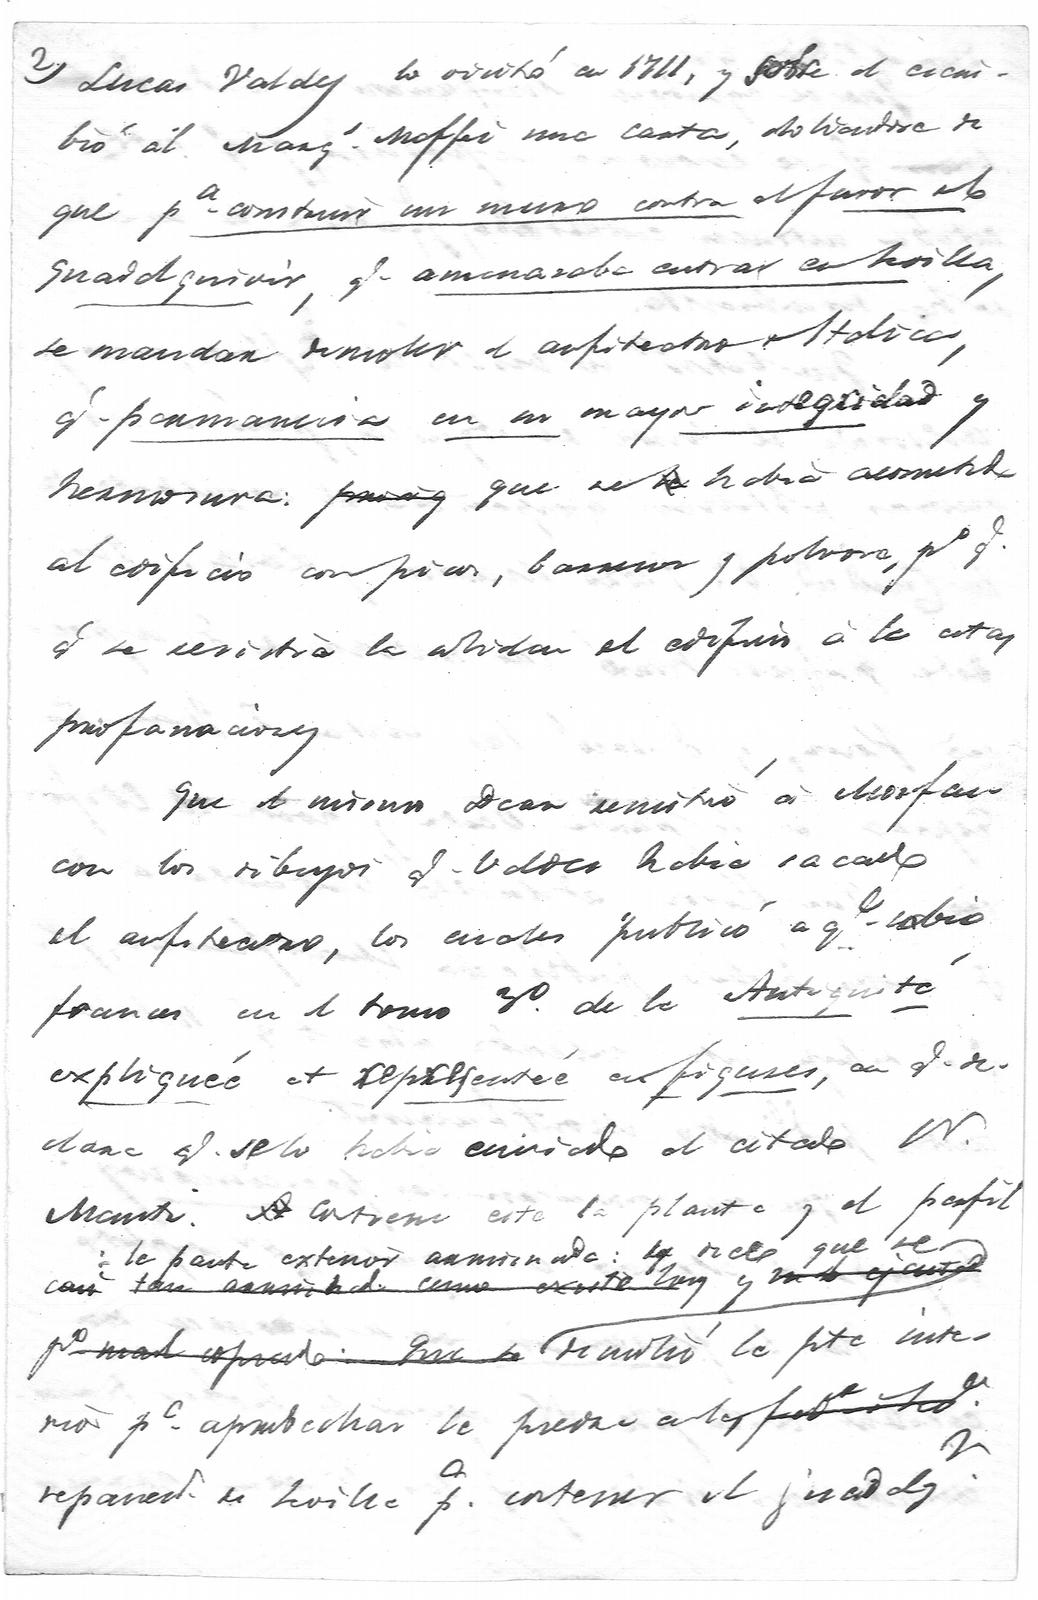 2) Lucas Valdes lo visitó en 1711, y sobre el escri-
bió al Marqs. Maffei una carta, doliendose de
que pa. construir un muro contra el furor del
Guadalquivir, q. amenazaba entrar en Sevilla,
se mandara demoler el anfiteatro de Italica,
q. permanecia en su mayor integridad y
hermosura: que se habia acometido
al edificio con picos, barrenos y polvora, po. q.
q. se resistia la solidez del edificio à la
profanaciones
Que el mismo Dean remitió à Monfau-
con los dibujos q. Valdes habia sacado
el anfiteatro, los cuales publicó aql. sabio
frances en el tomo 3o. de la Antiquité
expliqueé et representeé en figures, en q. de-
clara q. se lo habia enviado el citado Dn.
Marti. Contiene este la planta y el perfil
: la parte exterior arruinada: y dice que se
casi tan arruinada como existe hoy y
po. mal copiado. Que se demolió la pte inte-
rior pa. aprobechar la piedra en las
reparacs. de Sevilla pa. contener el Guadalqr.